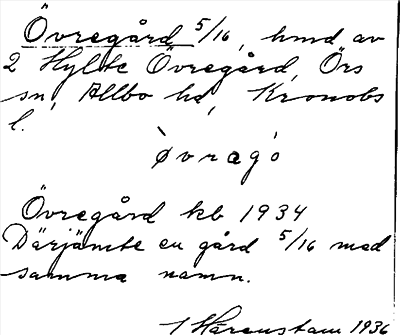 Övregård 5/16, hmd av
2 Hylte Övregård, Örs
sn, Allbo hd, Kronobs
l.
òvragó
Övregård kb 1934
Därjämte en gård 5/16 med
samma namn.
Harenstam 1936